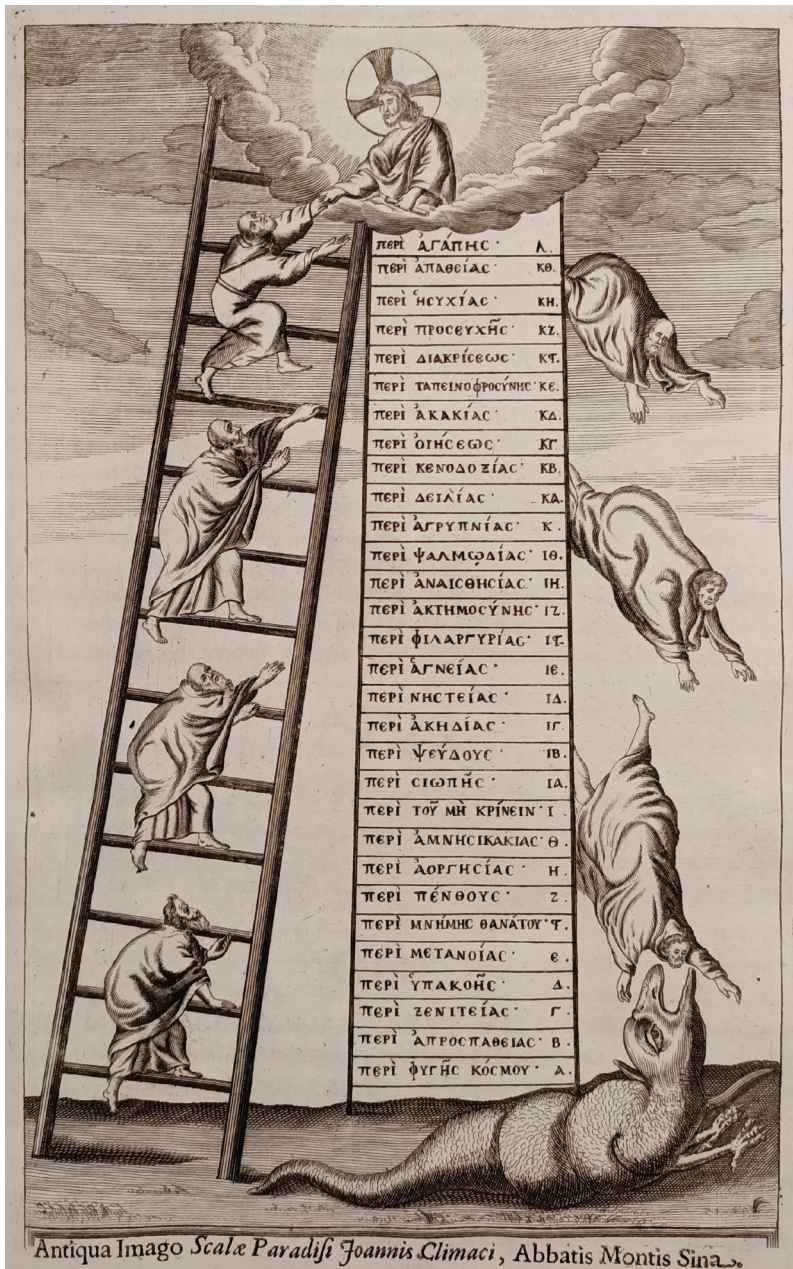 περὶ ἀγάπης · λ.
περὶ ἀπαθείας · κθ.
περὶ ἡσυχίας · κη.
περὶ προσευχῆς · κζ.
περὶ διακρίσεως · κϛ.
περὶ ταπεινοφροσύνης · κε.
περὶ ἀκακίας · κδ.
περὶ ὀιήσεως · κγ
περὶ κενοδοξίας · κβ.
περὶ δειλίας · κα.
περὶ ἀγρυπνίας · κ.
περὶ ψαλμῳδίας · ιθ.
περὶ ἀναισθησίας · ιη.
περὶ ἀκτημοσύνης · ιζ.
περὶ φιλαργυρίας · ιϛ.
περὶ ἁγνείας · ιε.
περὶ νηστείας · ιδ.
περὶ ἀκηδίας · ιγ.
περὶ ψεύδους · ιβ.
περὶ σιωπῆς · ια.
περὶ τοῦ μὴ κρίνειν · ι.
περὶ ἀμνησικακίας · θ.
περὶ ἀοργησίας · η.
περὶ πένθους · ζ.
περὶ μνήμης θανάτου · ϛ.
περὶ μετανοίας · ε.
περὶ ὑπακοῆς · δ.
περὶ ξενιτείας · γ.
περὶ ἀπροσπαθειας · β.
περὶ φυγῆς κόσμου · α.
Antiqua Imago Scalæ Paradisi Joannis Climaci, Abbatis Montis Sina.